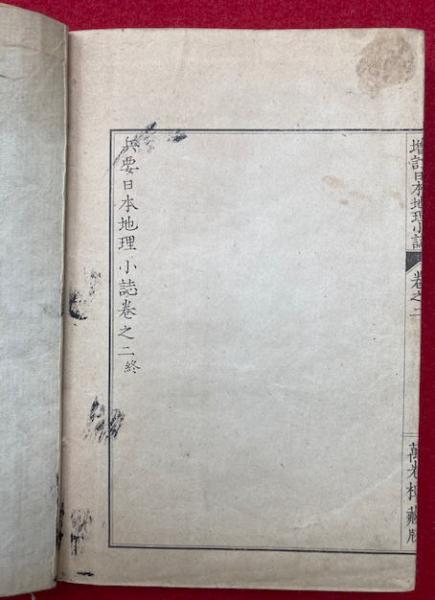 增訂日本地理小誌
卷之二
萬卷樓藏版
兵要日本地理小誌卷之二終